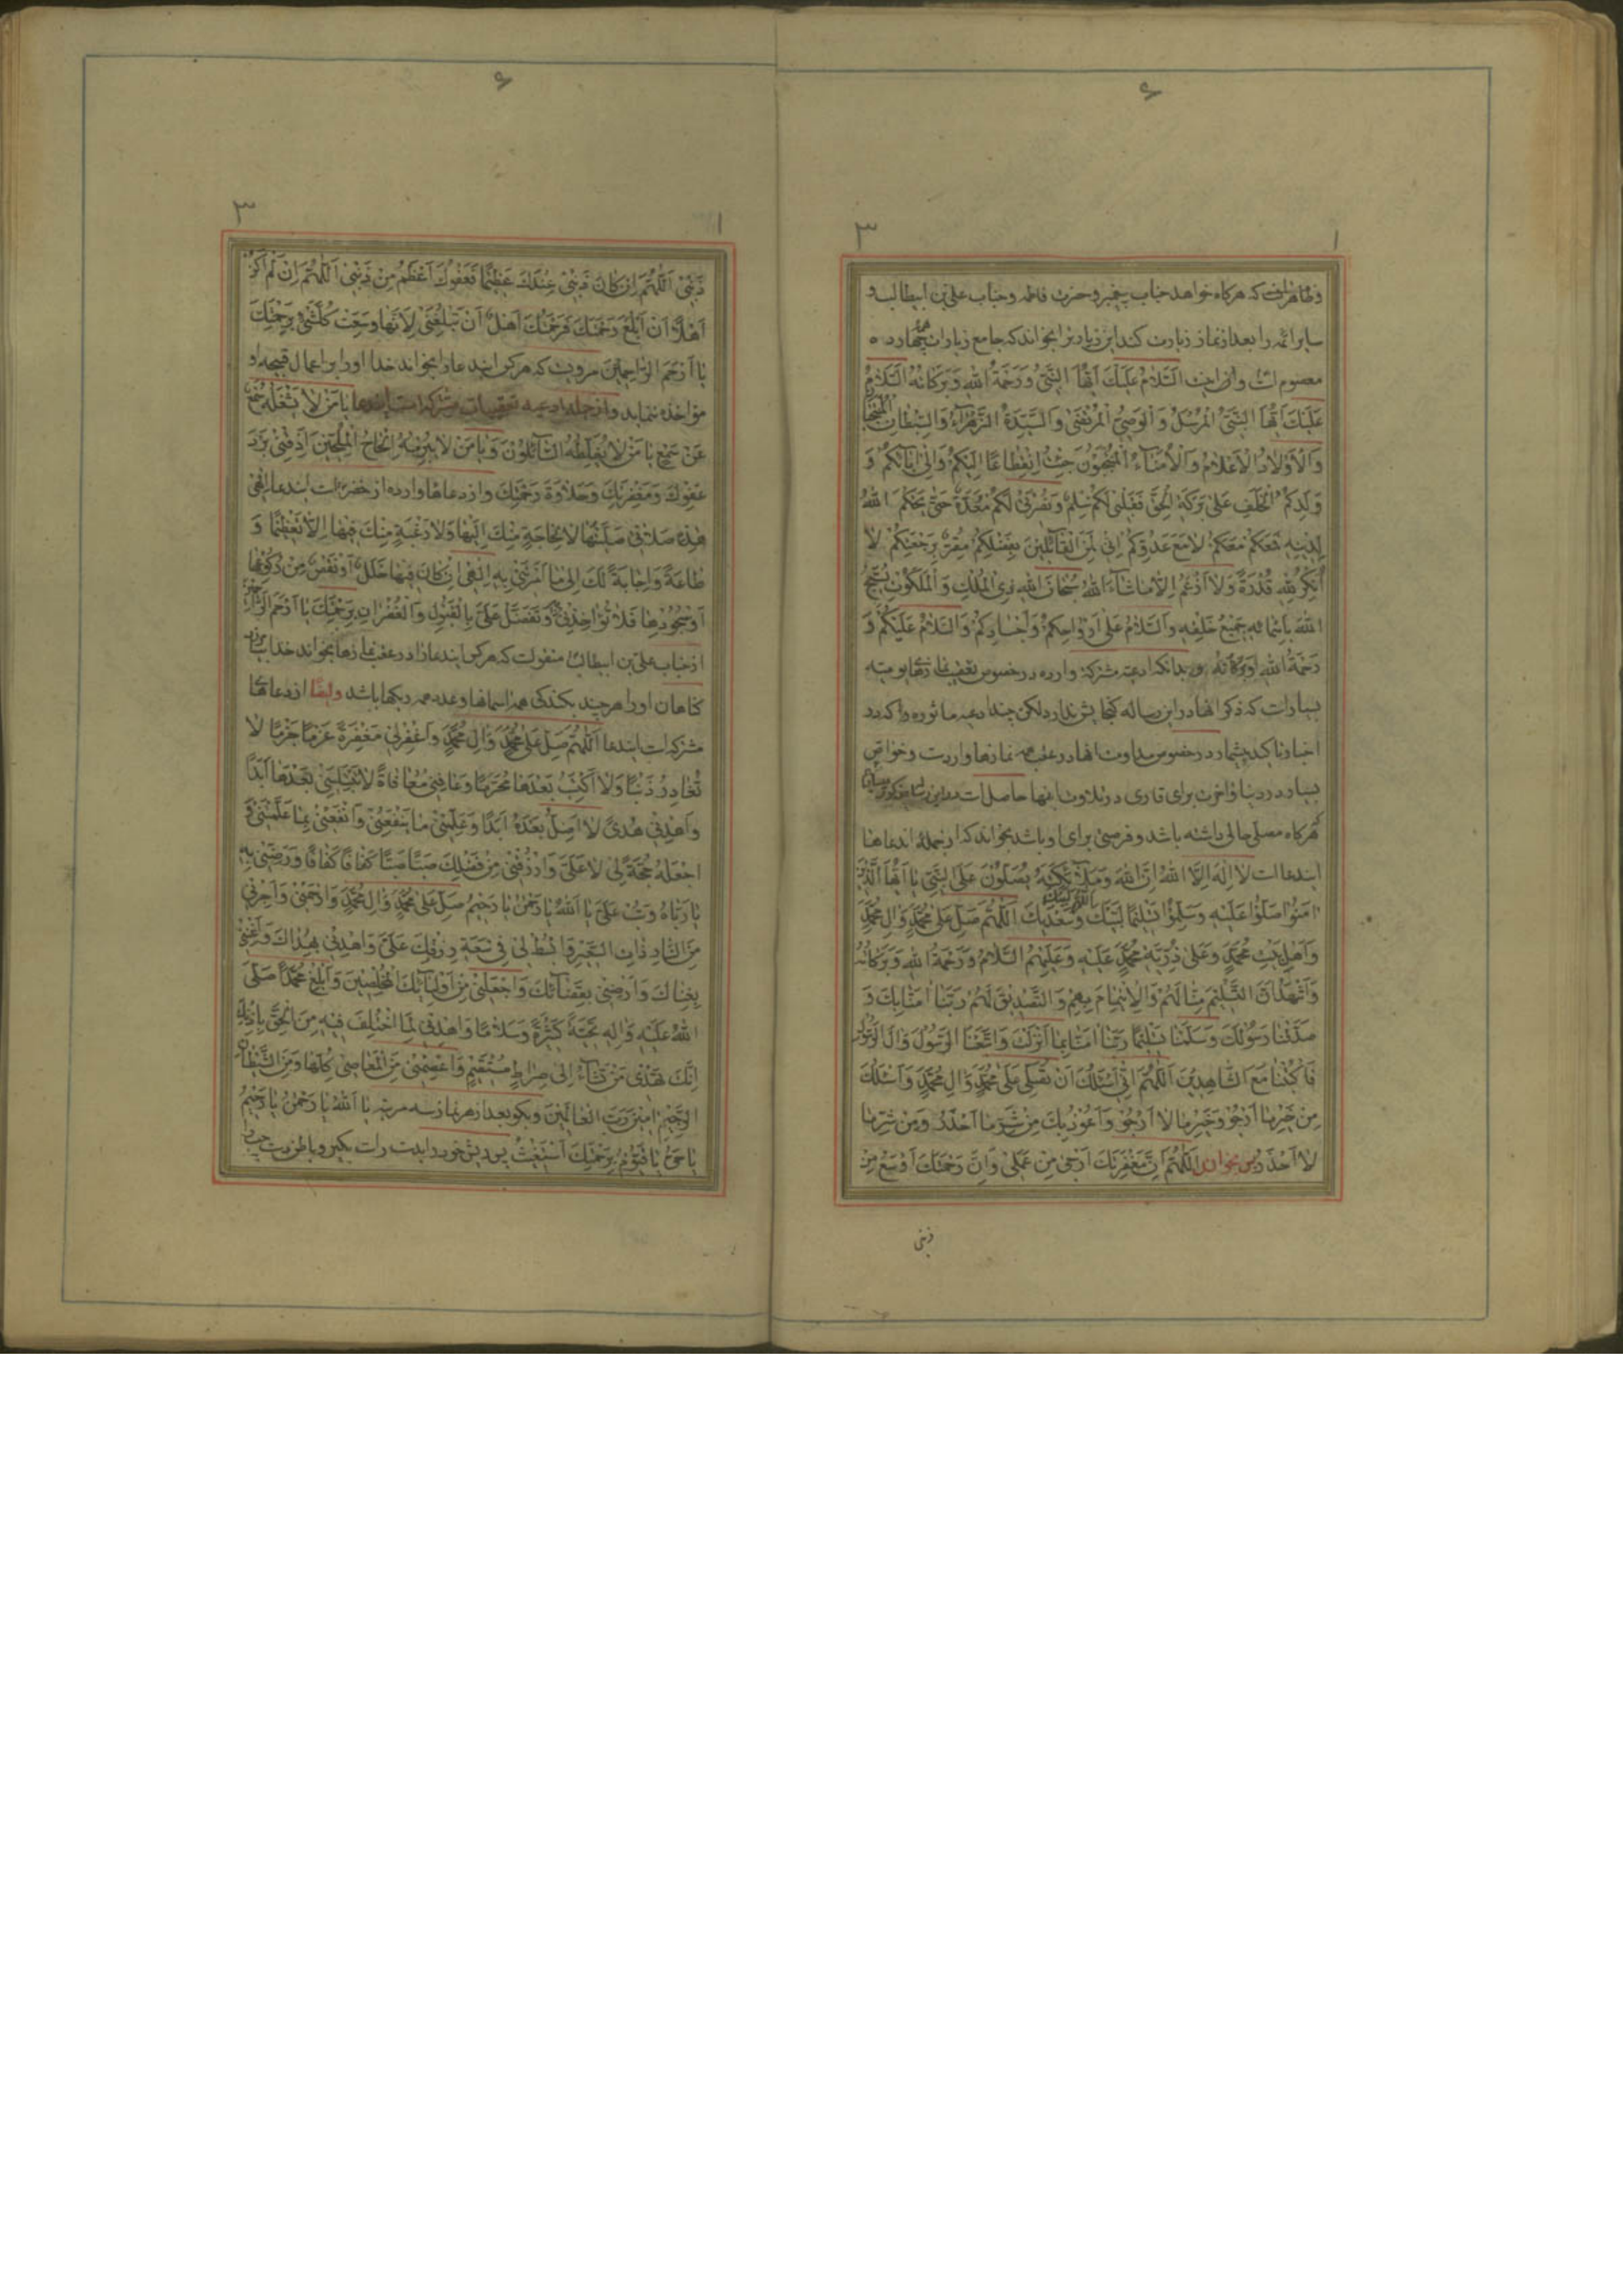 ۶
۳ ۱
و ظاهر است که هرگاه خواهد جناب پیغمبر و حضرت فاطمه و جناب علی بن ابیطالب و
سایر ائمه را بعد از نماز زیارت کند این زیارت را بخواند که جامع زیارات چهارده
معصوم است و آن اینست اَلسَّلامُ عَلَيْكَ اَيُّهَا النَّبِيُّ وَرَحْمَةُ اللهِ وَبَرَكاتُهُ اَلسَّلامُ
عَلَيْكَ اَيُّهَا النَّبِيُّ الْمُرْسَلُ وَالْوَصِيُّ الْمُرْتَضى وَالسَّيِّدَةُ الزَّهْراءُ وَالسِّبْطانِ الْمُنْتَجَبانِ
وَالْاَوْلادُ الْاَعْلامُ وَالْاُمَناءُ الْمُنْتَجَبُونَ جِئْتُ اِنْقِطاعًا اِلَيْكُمْ وَاِلى ابائِكُمْ وَ
وَلَدِكُمُ الْخَلَفِ عَلى بَرَكَةِ الْحَقِّ فَقَلْبي لَكُمْ سِلْمٌ وَنُصْرَتي لَكُمْ مُعَدَّةٌ حَتّى يَحْكُمَ اللهُ
لِدينِهِ فَمَعَكُمْ مَعَكُمْ لا مَعَ عَدُوِّكُمْ اِنّي لَمِنَ الْقائِلينَ بِفَضْلِكُمْ مُقِرٌّ بِرَجْعَتِكُمْ لا
اُنْكِرُ لِلّهِ قُدْرَةً وَلا اَزْعُمُ اِلّا ما شاءَ اللهُ سُبْحانَ اللهِ ذِي الْمُلْكِ وَالْمَلَكُوتِ يُسَبِّحُ
اللهَ بِاَسْمائِهِ جَميعُ خَلْقِهِ وَالسَّلامُ عَلى اَرْواحِكُمْ وَاَجْسادِكُمْ وَالسَّلامُ عَلَيْكُمْ وَ
رَحْمَةُ اللهِ وَبَرَكاتُهُ و بدانکه ادعیه مشترکه وارده در خصوص تعقیب نمازهای یومیه
بسیار است که ذکر انها در این رساله گنجایش ندارد لکن چند ادعیه ماثوره را که در
اخبار تاکید بیشمار در خصوص مداومت انها در عقب همه نمازها وارد است و خواص
بسیار در دنیا و اخرت برای قاری در تلاوت اینها حاصل است در این رساله مذکور میسازد
که هرگاه مصلی حالی داشته باشد و فرصتی برای او باشد بخواند که از جمله اندعاها
ایندعا است لا اِلهَ اِلَّا اللهُ اِنَّ اللهَ وَمَلائِكَتَهُ يُصَلُّونَ عَلَى النَّبِيِّ يا اَيُّهَا الَّذينَ
امَنُوا صَلُّوا عَلَيْهِ وَسَلِّمُوا تَسْليمًا لَبَّيْكَ وَسَعْدَيْكَ اَللّهُمَّ صَلِّ عَلى مُحَمَّدٍ وَالِ مُحَمَّدٍ
وَاَهْلِ بَيْتِ مُحَمَّدٍ وَعَلى ذُرِّيَّةِ مُحَمَّدٍ عَلَيْهِ وَعَلَيْهِمُ السَّلامُ وَرَحْمَةُ اللهِ وَبَرَكاتُهُ
وَاَشْهَدُ اَنَّ التَّسْليمَ مِنّا لَهُمْ وَالْاِئْتِمامَ بِهِمْ وَالتَّصْديقَ لَهُمْ رَبَّنا امَنّا بِكَ وَ
صَدَّقْنا رَسُولَكَ وَسَلَّمْنا تَسْليمًا رَبَّنا امَنّا بِما اَنْزَلْتَ وَاتَّبَعْنَا الرَّسُولَ وَالَ الرَّسُولِ
فَاكْتُبْنا مَعَ الشّاهِدينَ اَللّهُمَّ اِنّي اَسْئَلُكَ اَنْ تُصَلِّيَ عَلى مُحَمَّدٍ وَالِ مُحَمَّدٍ وَاَسْئَلُكَ
مِنْ خَيْرِ ما اَرْجُو وَخَيْرِ ما لا اَرْجُو وَاَعُوذُ بِكَ مِنْ شَرِّ ما اَحْذَرُ وَمِنْ شَرِّ ما
لا اَحْذَرُ پس بخوان اَللّهُمَّ اِنَّ مَغْفِرَتَكَ اَرْجى مِنْ عَمَلي وَاِنَّ رَحْمَتَكَ اَوْسَعُ مِنْ
ذنبی
۶
۳ ۱
ذَنْبي اَللّهُمَّ اِنْ كانَ ذَنْبي عِنْدَكَ عَظيمًا فَعَفْوُكَ اَعْظَمُ مِنْ ذَنْبي اَللّهُمَّ اِنْ لَمْ اَكُنْ
اَهْلًا اَنْ اَبْلُغَ رَحْمَتَكَ فَرَحْمَتُكَ اَهْلٌ اَنْ تَبْلُغَني لِاَنَّها وَسِعَتْ كُلَّ شَيْءٍ بِرَحْمَتِكَ
يا اَرْحَمَ الرّاحِمينَ مرویست که هر کس ایندعا را بخواند خدا او را بر اعمال قبیحه او
مواخذه ننماید و از جمله ادعیه تعقیبات مشترکه است ایندعا يا مَنْ لا يَشْغَلُهُ سَمْعٌ
عَنْ سَمْعٍ يا مَنْ لا يُغَلِّطُهُ السّائِلُونَ وَيا مَنْ لا يُبْرِمُهُ اِلْحاحُ الْمُلِحّينَ اَذِقْني بَرْدَ
عَفْوِكَ وَمَغْفِرَتِكَ وَحَلاوَةَ رَحْمَتِكَ و از دعاها وارده از حضرت است ایندعا اِلهي
هذِهِ صَلاتي صَلَّيْتُها لا لِحاجَةٍ مِنْكَ اِلَيْها وَلا رَغْبَةٍ مِنْكَ فيها اِلّا تَعْظيمًا وَ
طاعَةً وَاِجابَةً لَكَ اِلى ما اَمَرْتَني بِهِ اِلهي اِنْ كانَ فيها خَلَلٌ اَوْ نَقْصٌ مِنْ رُكُوعِها
اَوْ سُجُودِها فَلا تُؤاخِذْني وَتَفَضَّلْ عَلَيَّ بِالْقَبُولِ وَالْغُفْرانِ بِرَحْمَتِكَ يا اَرْحَمَ الرّاحِمينَ
از جناب علی بن ابیطالب منقولست که هر کس ایندعا را در عقب نمازها بخواند خدا بیامرزد
گناهان او را هر چند بعدد همه اسمانها و عدد همه ریگها باشد و ایضا از دعاها
مشترکه است ایندعا اَللّهُمَّ صَلِّ عَلى مُحَمَّدٍ وَالِ مُحَمَّدٍ وَاغْفِرْ لي مَغْفِرَةً عَزْمًا جَزْمًا لا
تُغادِرُ ذَنْبًا وَلا اَكْتَسِبُ بَعْدَها مُحَرَّمًا وَعافِني مُعافاةً لا تَبْتَليني بَعْدَها اَبَدًا
وَاهْدِني هُدًى لا اَضِلُّ بَعْدَهُ اَبَدًا وَعَلِّمْني ما يَنْفَعُني وَانْفَعْني بِما عَلَّمْتَني وَ
اجْعَلْهُ حُجَّةً لي لا عَلَيَّ وَارْزُقْني مِنْ فَضْلِكَ صَبًّا صَبًّا كَفافًا كَفافًا وَرَضِّني بِهِ
يا رَبّاهُ وَتُبْ عَلَيَّ يا اَللهُ يا رَحْمنُ يا رَحيمُ صَلِّ عَلى مُحَمَّدٍ وَالِ مُحَمَّدٍ وَارْحَمْني وَاَجِرْني
مِنَ النّارِ ذاتِ السَّعيرِ وَابْسُطْ لي في سَعَةِ رِزْقِكَ عَلَيَّ وَاهْدِني بِهُداكَ وَاَغْنِني
بِغِناكَ وَاَرْضِني بِقَضائِكَ وَاجْعَلْني مِنْ اَوْلِيائِكَ الْمُخْلَصينَ وَاَبْلِغْ مُحَمَّدًا صَلَّى
اللهُ عَلَيْهِ وَالِهِ تَحِيَّةً كَثيرَةً وَسَلامًا وَاهْدِني لِمَا اخْتُلِفَ فيهِ مِنَ الْحَقِّ بِاِذْنِكَ
اِنَّكَ تَهْدي مَنْ تَشاءُ اِلى صِراطٍ مُسْتَقيمٍ وَاعْصِمْني مِنَ الْمَعاصي كُلِّها وَمِنَ الشَّيْطانِ
الرَّجيمِ امينَ رَبَّ الْعالَمينَ و بگو بعد از هر نماز سه مرتبه يا اَللهُ يا رَحْمنُ يا رَحيمُ
يا حَيُّ يا قَيُّومُ بِرَحْمَتِكَ اَسْتَغيثُ پس ریش خود را بدست راست بگیر و باطن دست چپ را